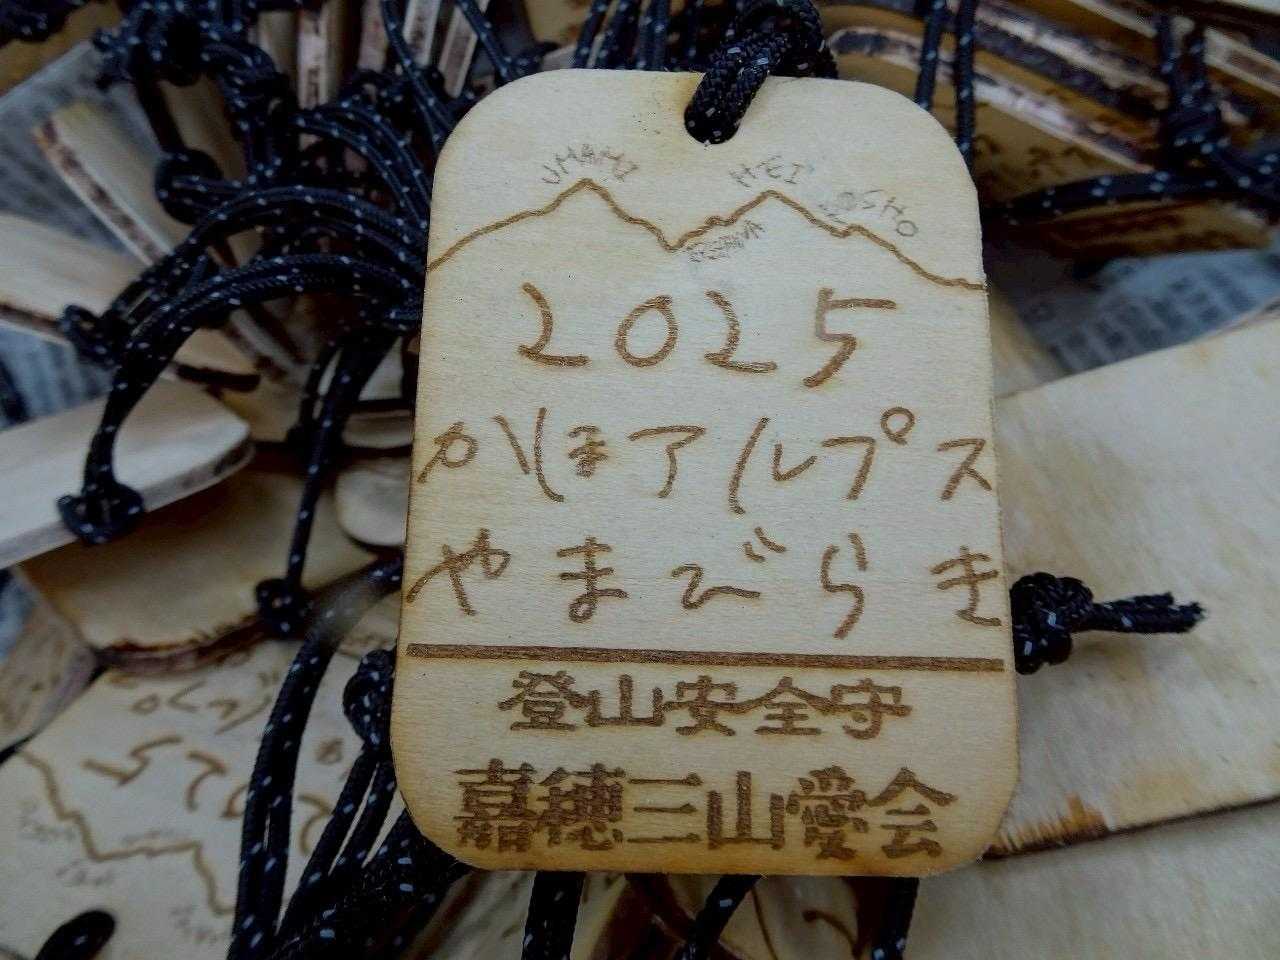 UMAMI
HEI
OSHO
2025
かほアルプス
やまびらき
登山安全守
嘉穂三山愛会